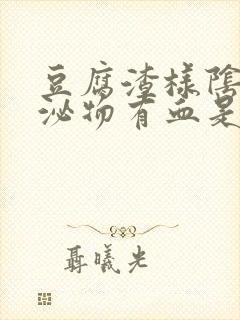 豆腐渣樣陰
泌物有血是
聶曦光